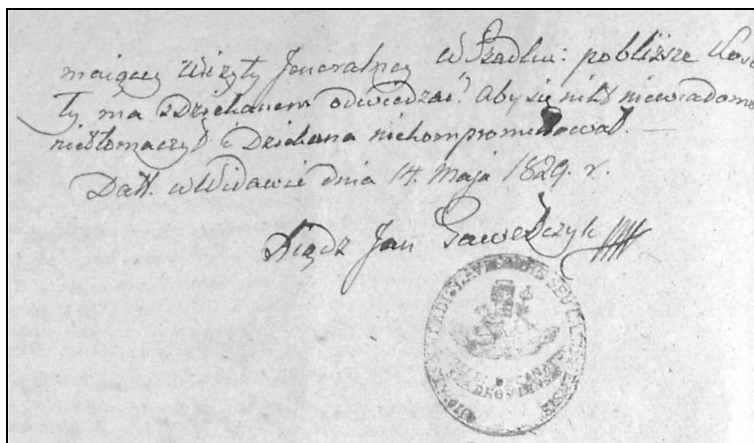 maiącey Wizyty Jeneralney w Szadku: pobliższe Kość
ty ma zDziekanem odwiedzać: aby się nikt niewiadomo
nietłomaczył i Dziekana niekompromitował. —
Datt. w Widawie dnia 14. Maja 1829. r.
Xiądz Jan Gawełczyk